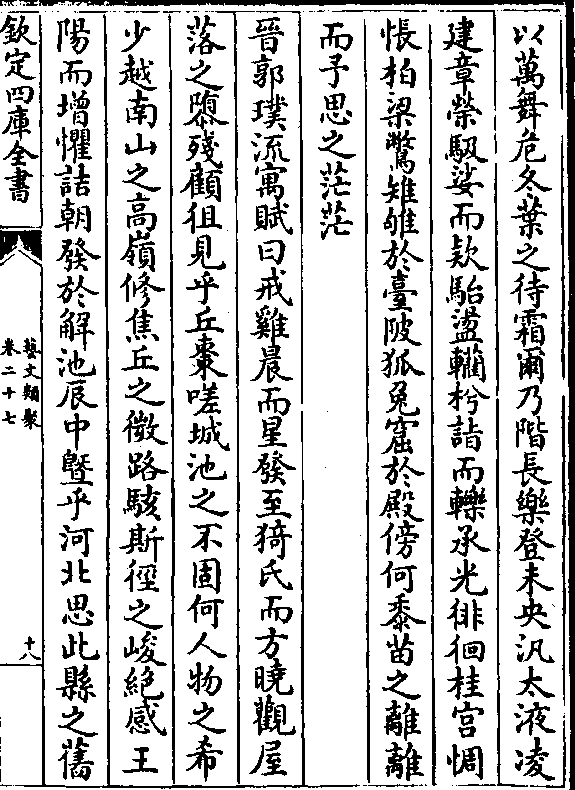 以萬舞危冬葉之待霜爾乃階長樂登未央汎太液凌
建章縈馺娑而款駘盪轥枍詣而轢承光徘徊桂宮惆
悵柏梁驚雉雊於臺陂狐兔窟於殿傍何黍苗之離離
而予思之茫茫
晉郭璞流寓賦曰戒雞晨而星發至猗氏而方曉觀屋
落之隳殘顧徂見乎丘棗嗟城池之不固何人物之希
少越南山之高嶺修焦丘之微路駭斯徑之峻絕感王
陽而增懼詰朝發於解池辰中暨乎河北思此縣之舊
欽定四庫全書
藝文類聚
卷二十七
十八